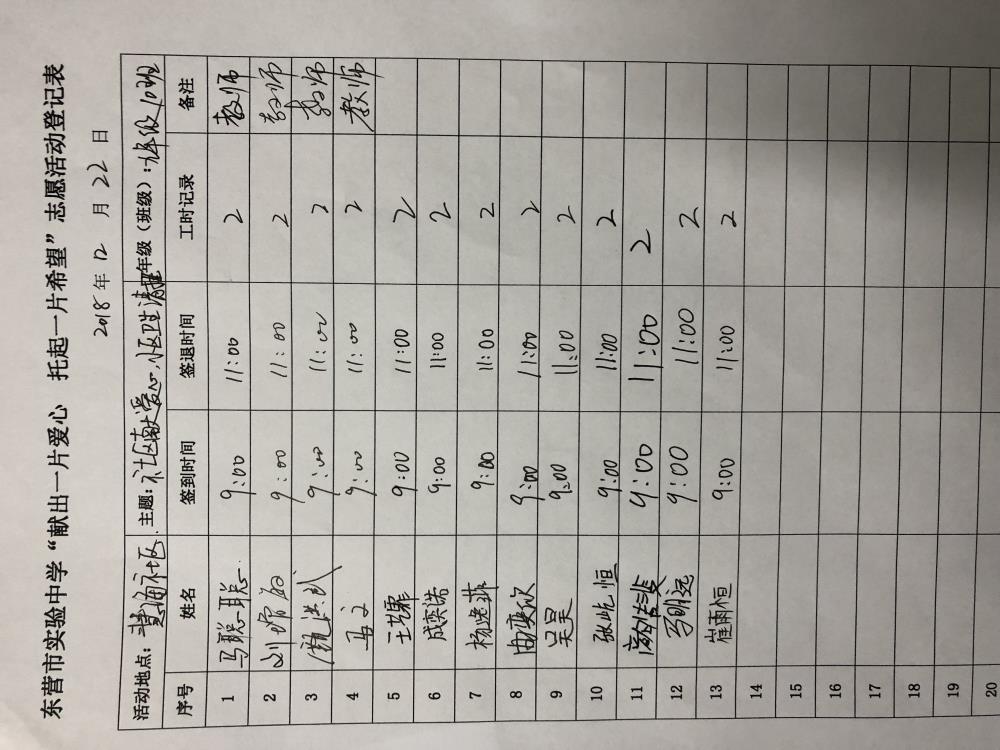 东营市实验中学“献出一片爱心 托起一片希望”志愿活动登记表
2018年12月22日
活动地点: 社区 主题: 社区献爱心, 卫生清理 年级(班级): 级10班
序号 姓名 签到时间 签退时间 工时记录 备注
1 马聪聪 9:00 11:00 2 教师
2 9:00 11:00 2 教师
3 9:00 11:00 2 教师
4 9:00 11:00 2 教师
5 9:00 11:00 2
6 成奕诺 9:00 11:00 2
7 杨逸菲 9:00 11:00 2
8 9:00 11:00 2
9 吴昊 9:00 11:00 2
10 张屹恒 9:00 11:00 2
11 9:00 11:00 2
12 马明远 9:00 11:00 2
13 崔雨恒 9:00 11:00 2
14
15
16
17
18
19
20